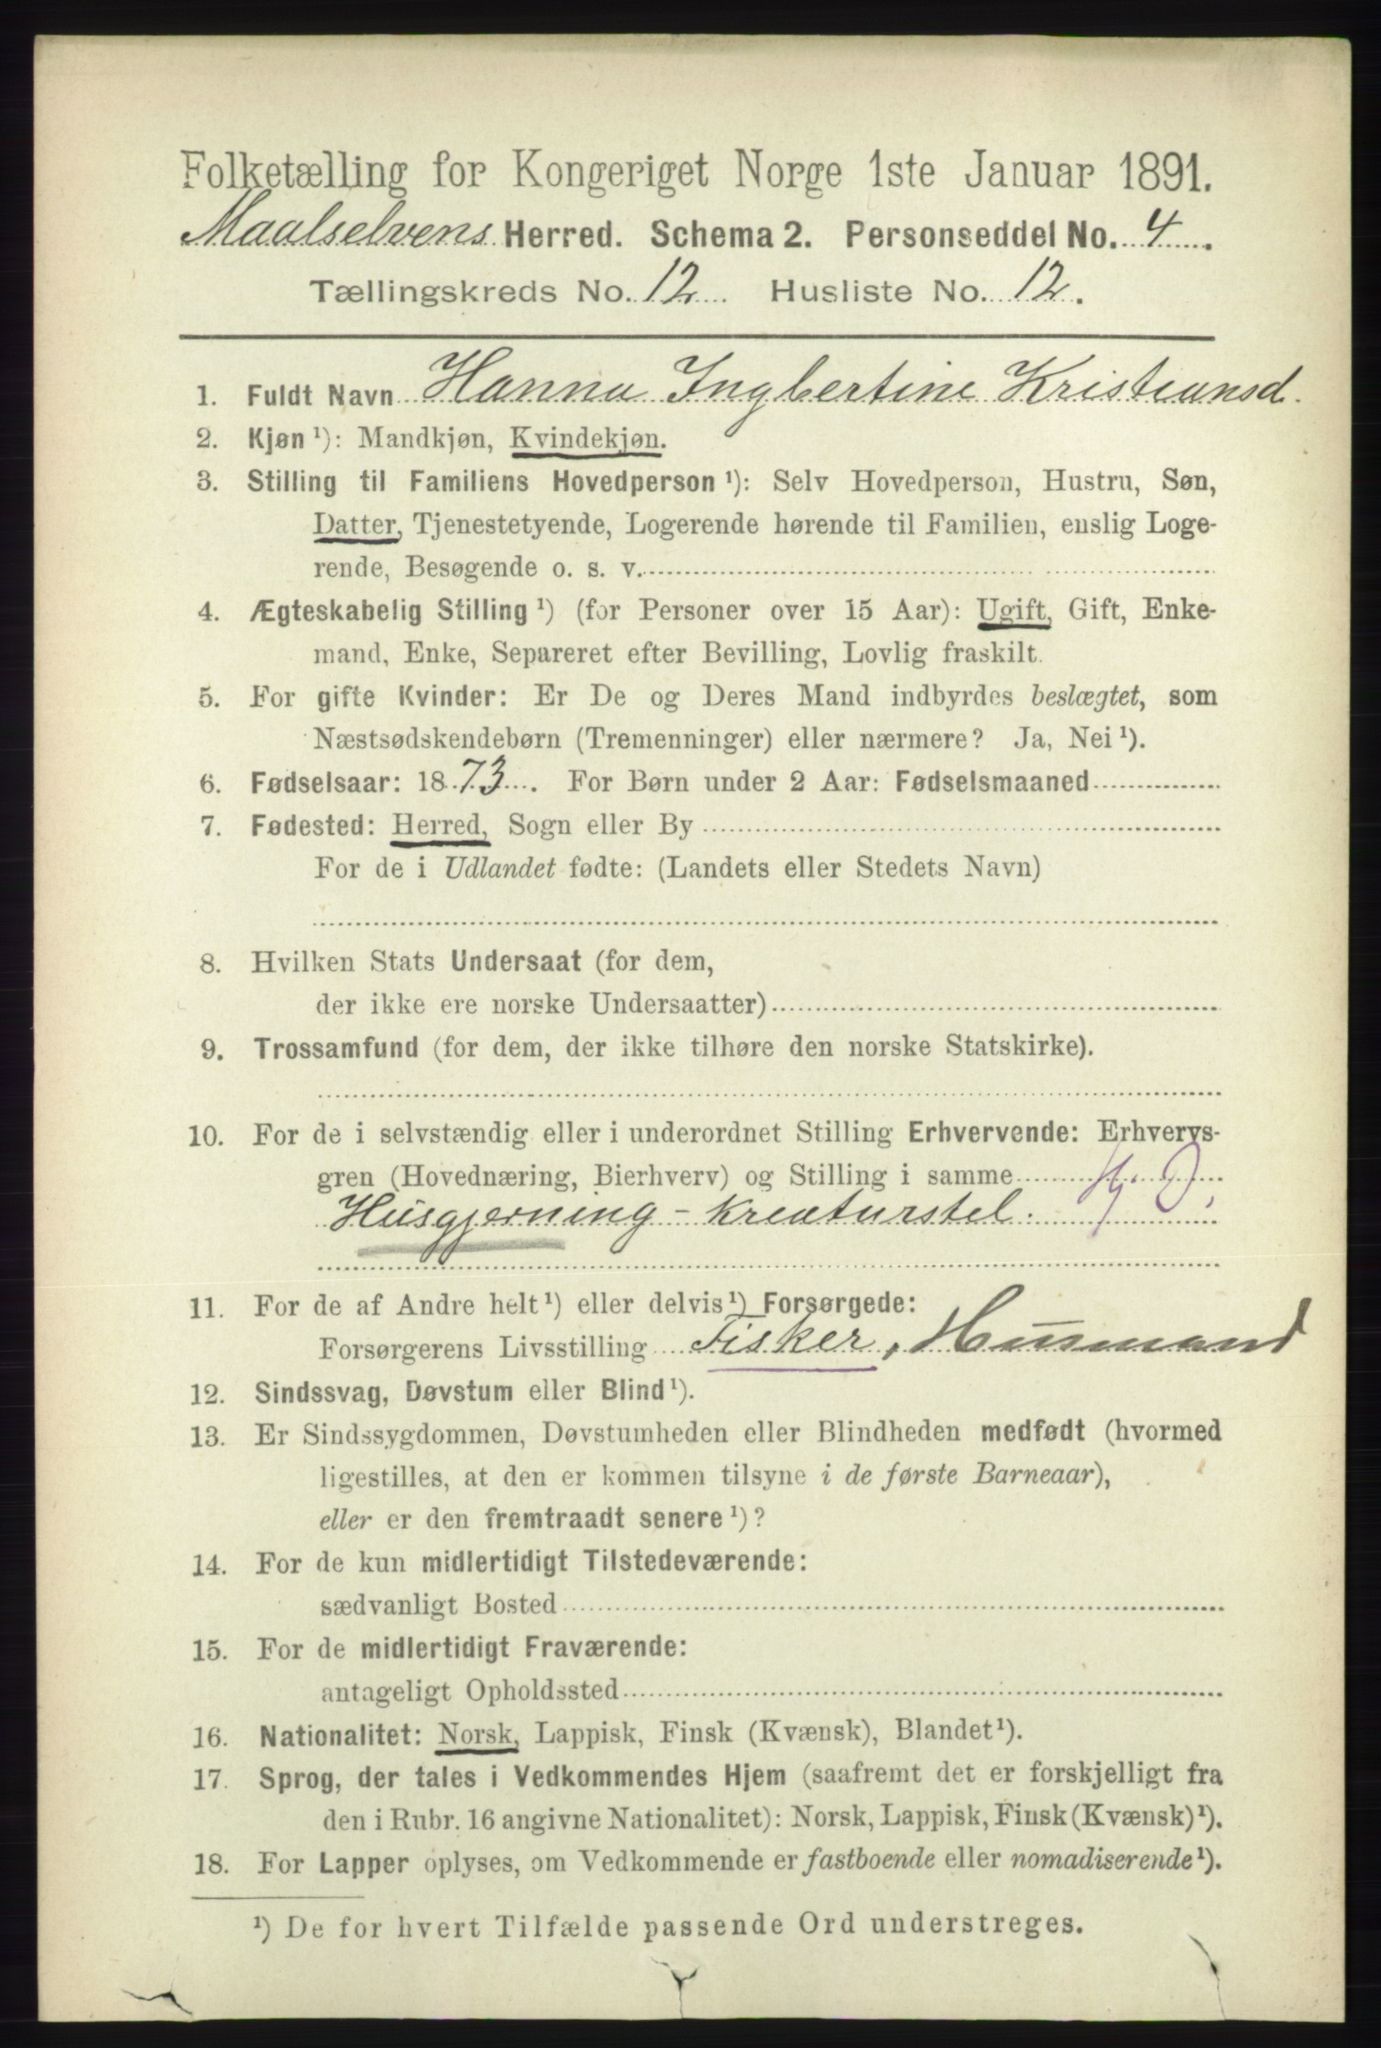 Folketælling for Kongeriget Norge 1ste Januar 1891.
Maalselvens Herred. Schema 2. Personseddel No. 4.
Tællingskreds No. 12. Husliste No. 12.
1. Fuldt Navn Hanna Ingbertine Kristiansd.
2. Kjøn ¹): Mandkjøn, Kvindekjøn.
3. Stilling til Familiens Hovedperson ¹): Selv Hovedperson, Hustru, Søn,
Datter, Tjenestetyende, Logerende hørende til Familien, enslig Loge-
rende, Besøgende o. s. v.
4. Ægteskabelig Stilling ¹) (for Personer over 15 Aar): Ugift, Gift, Enke-
mand, Enke, Separeret efter Bevilling, Lovlig fraskilt.
5. For gifte Kvinder: Er De og Deres Mand indbyrdes beslægtet, som
Næstsødskendebørn (Tremenninger) eller nærmere? Ja, Nei ¹).
6. Fødselsaar: 1873. For Børn under 2 Aar: Fødselsmaaned
7. Fødested: Herred, Sogn eller By
For de i Udlandet fødte: (Landets eller Stedets Navn)
8. Hvilken Stats Undersaat (for dem,
der ikke ere norske Undersaatter)
9. Trossamfund (for dem, der ikke tilhøre den norske Statskirke).
10. For de i selvstændig eller i underordnet Stilling Erhvervende: Erhvervs-
gren (Hovednæring, Bierhverv) og Stilling i samme
Husgjerning - kreaturstel.
11. For de af Andre helt ¹) eller delvis ¹) Forsørgede:
Forsørgerens Livsstilling Fisker, Husmand
12. Sindssvag, Døvstum eller Blind ¹).
13. Er Sindssygdommen, Døvstumheden eller Blindheden medfødt (hvormed
ligestilles, at den er kommen tilsyne i de første Barneaar),
eller er den fremtraadt senere ¹)?
14. For de kun midlertidigt Tilstedeværende:
sædvanligt Bosted
15. For de midlertidigt Fraværende:
antageligt Opholdssted
16. Nationalitet: Norsk, Lappisk, Finsk (Kvænsk), Blandet ¹).
17. Sprog, der tales i Vedkommendes Hjem (saafremt det er forskjelligt fra
den i Rubr. 16 angivne Nationalitet): Norsk, Lappisk, Finsk (Kvænsk) ¹).
18. For Lapper oplyses, om Vedkommende er fastboende eller nomadiserende ¹).
¹) De for hvert Tilfælde passende Ord understreges.